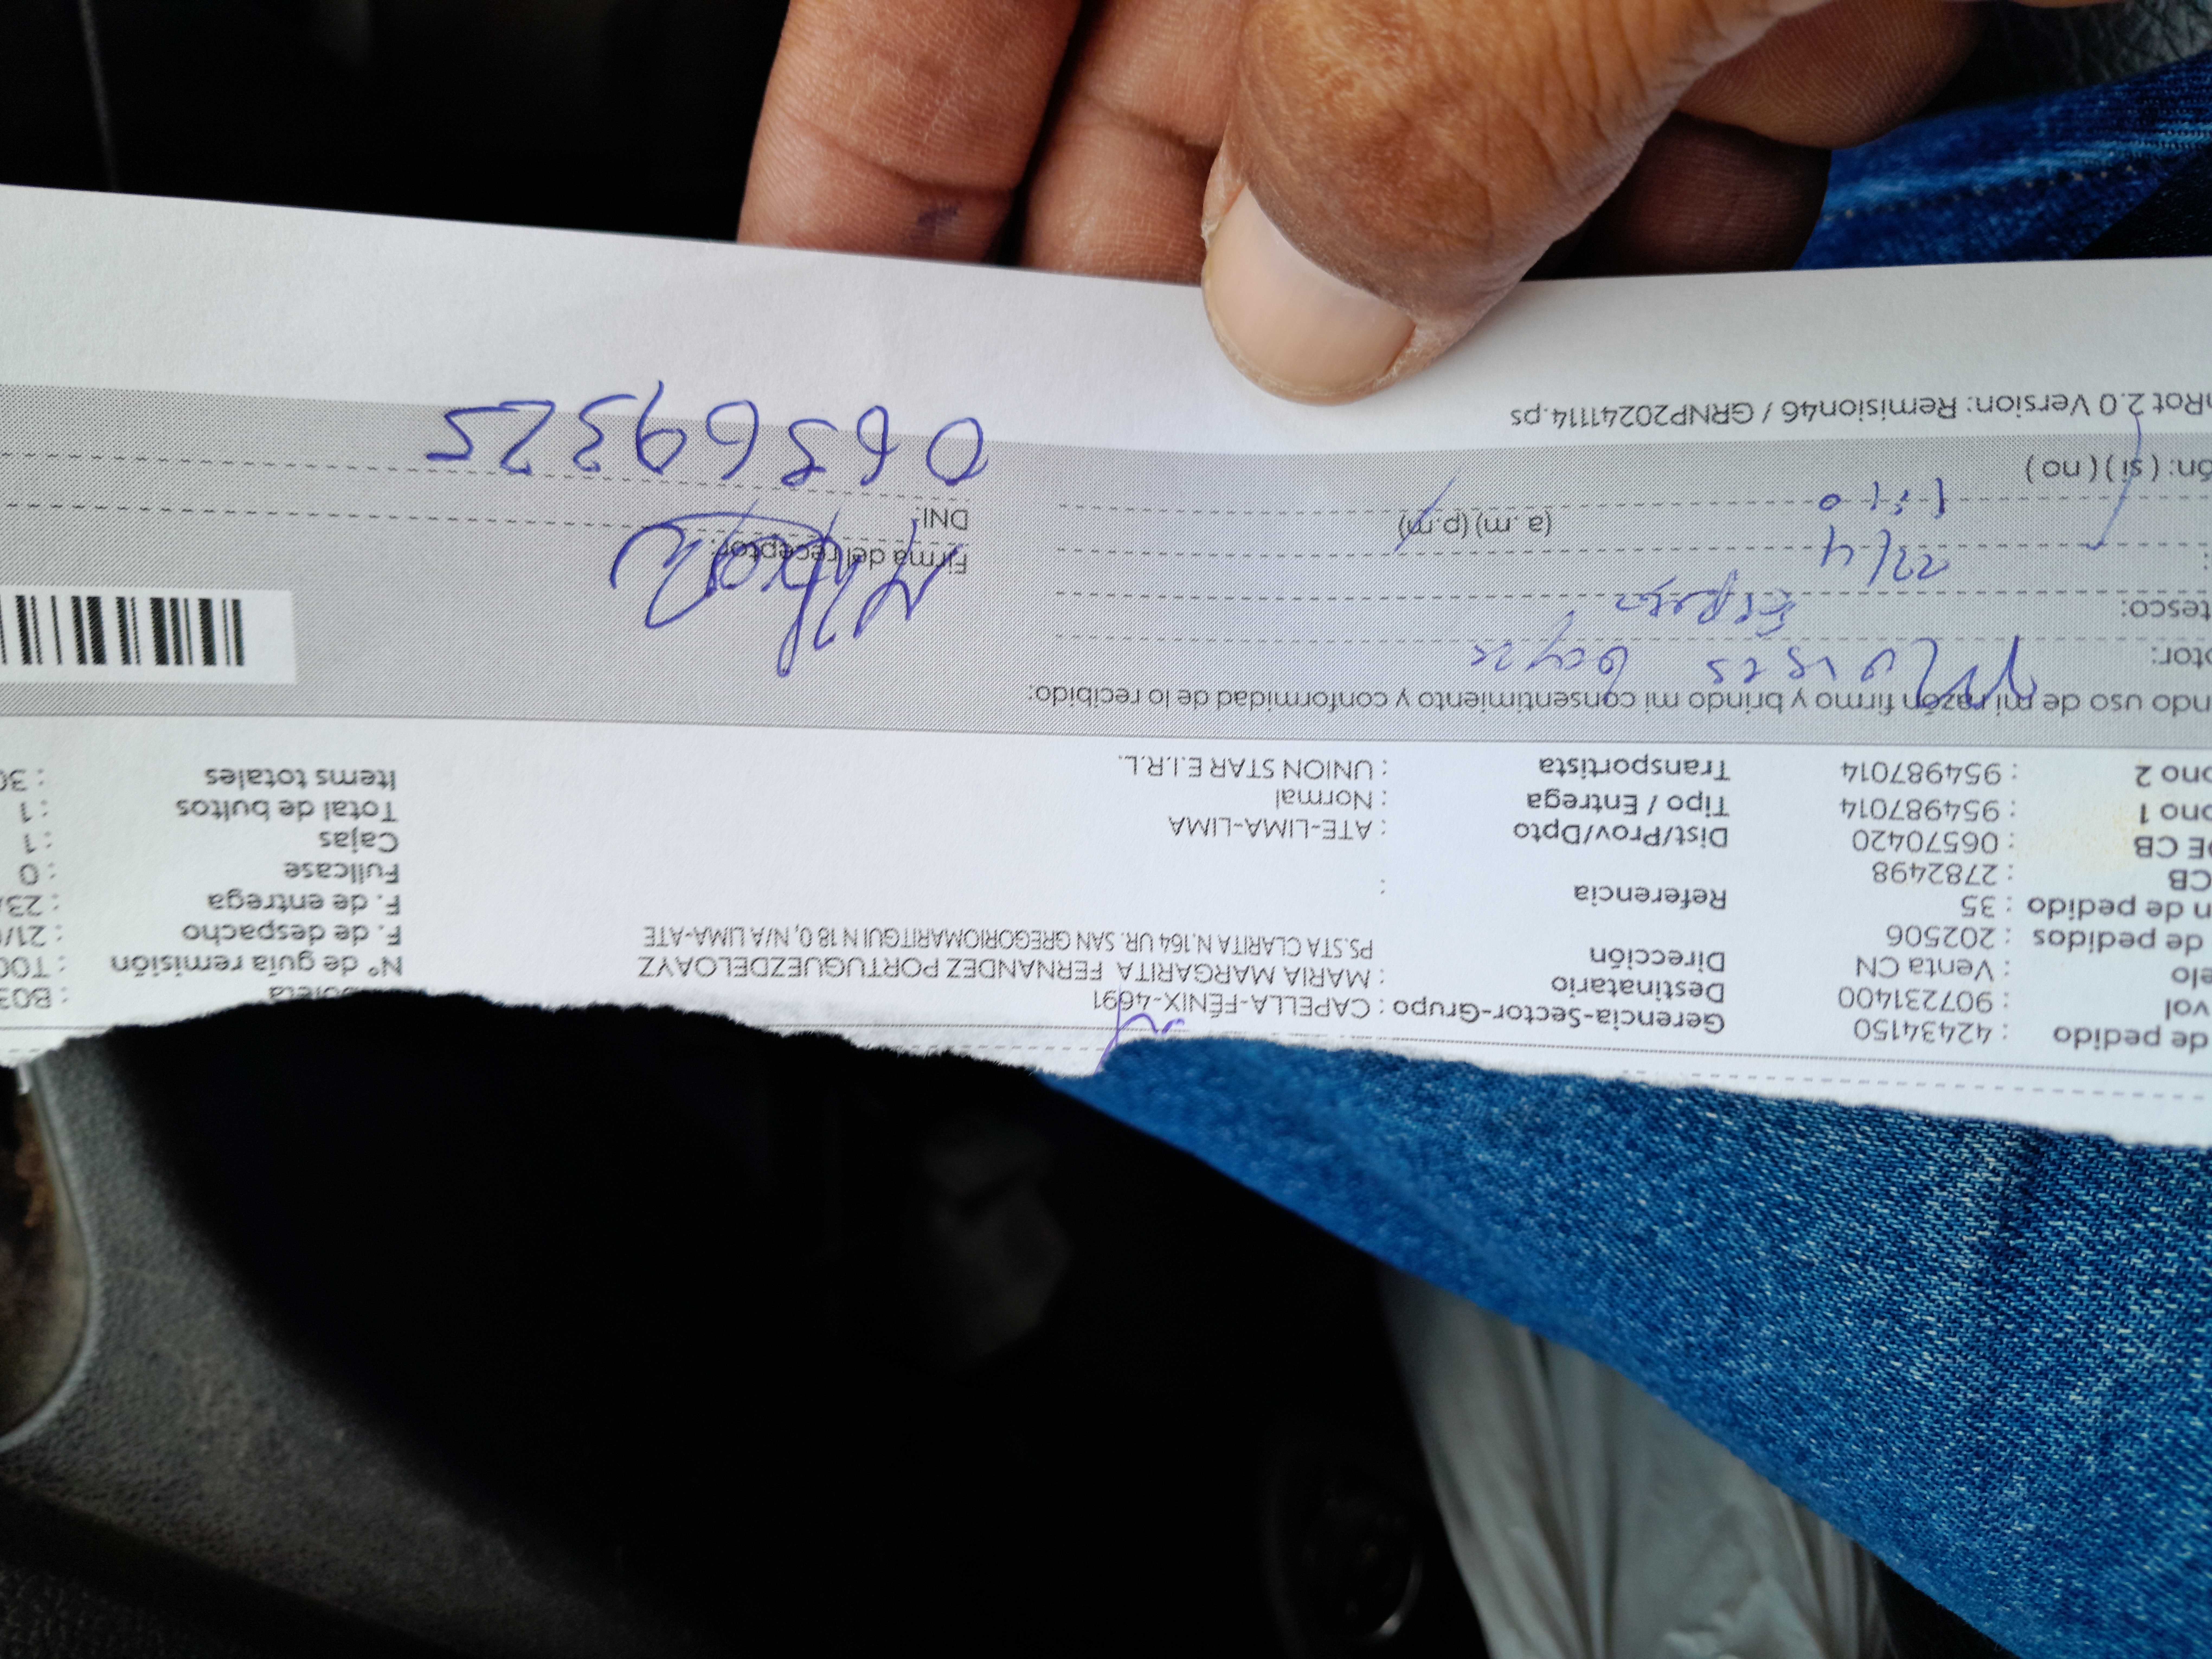 de pedido : 42434150 Gerencia-Sector-Grupo : CAPELLA-FÉNIX-4691
vol : 907231400 Destinatario : MARIA MARGARITA FERNANDEZ PORTUGUEZDELOAYZ : B03
elo : Venta CN Dirección PS.STA CLARITA N.164 UR. SAN GREGORIOMARITGUI N 18 0, N/A LIMA-ATE Nº de guia remisión : T00
de pedidos : 202506 F. de despacho : 21/
n de pedido : 35 Referencia : F. de entrega : 23/
CB : 2782498 Fullcase : 0
DE CB : 06570420 Dist/Prov/Dpto : ATE-LIMA-LIMA Cajas : 1
ono 1 : 954987014 Tipo / Entrega : Normal Total de bultos : 1
ono 2 : 954987014 Transportista : UNION STAR E.I.R.L. Items totales : 30
ndo uso de mi razón firmo y brindo mi consentimiento y conformidad de lo recibido:
ptor:
tesco:
Firma del receptor:
(a. m) (p.m) DNI:
ón: ( si ) ( no ) 06869325
nRot 2.0 Version: Remision46 / GRNP20241114.ps